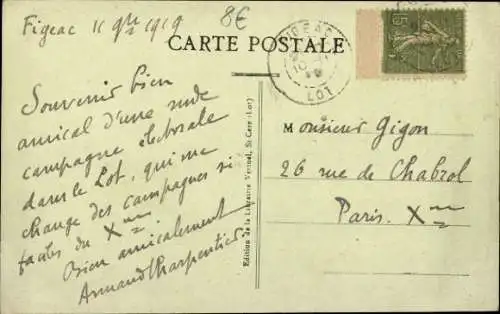 Figeac 11 9bre 1919
8€
CARTE POSTALE
FIGEAC
LOT
15
Souvenir bien
amical d'une rude
campagne électorale
dans le Lot, qui me
change des campagnes si
faciles du Xme
Bien amicalement
Armand Charpentier
Edition de la Librairie Vertuel, St-Céré (Lot)
Monsieur Gigon
26 rue de Chabrol
Paris. Xme